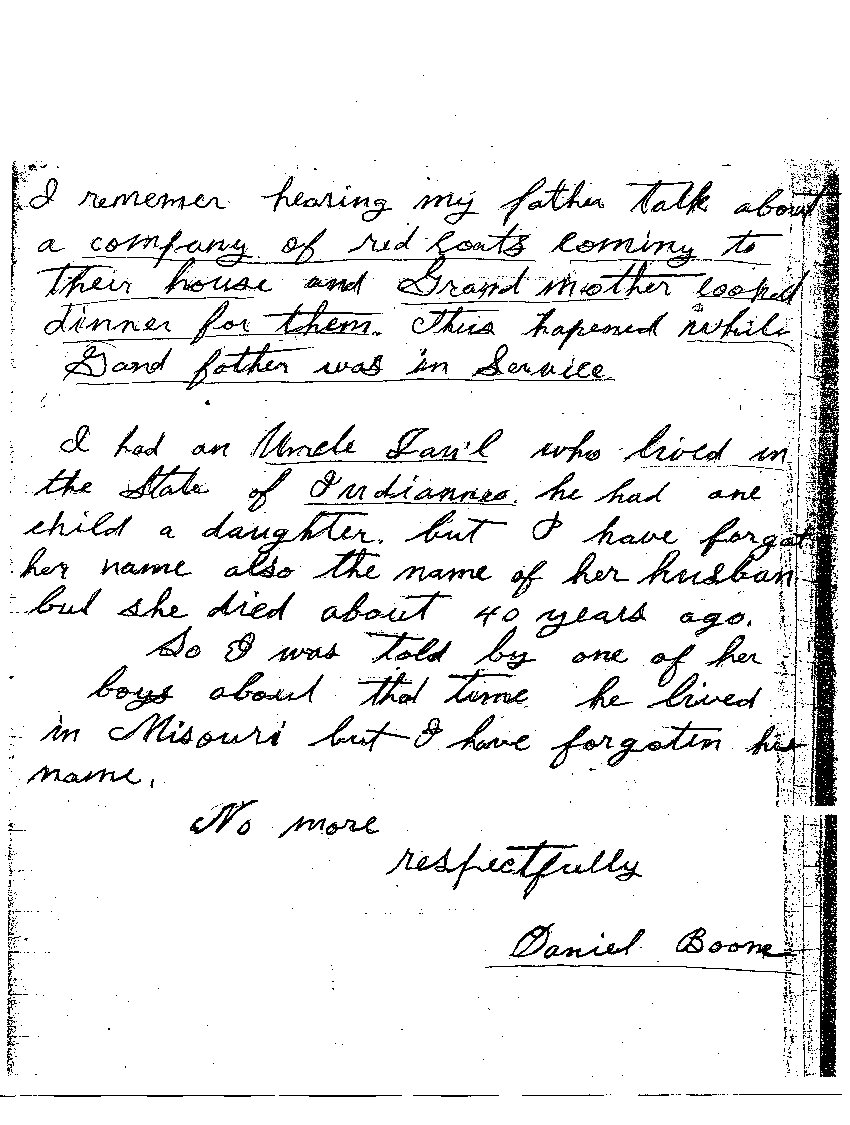 I rememer hearing my father talk about
a company of red Coats Coming to
their house and Grand mother cooked
dinner for them. This hapened while
Gand father was in Service
I had an Uncle who lived in
the State of he had one
child a daughter. but I have forgot
her name also the name of her husban
but she died about 40 years ago.
So I was told by one of her
boys about that time he lived
in Misouri but I have forgoten his
name.
No more
respectfully
Daniel Boone